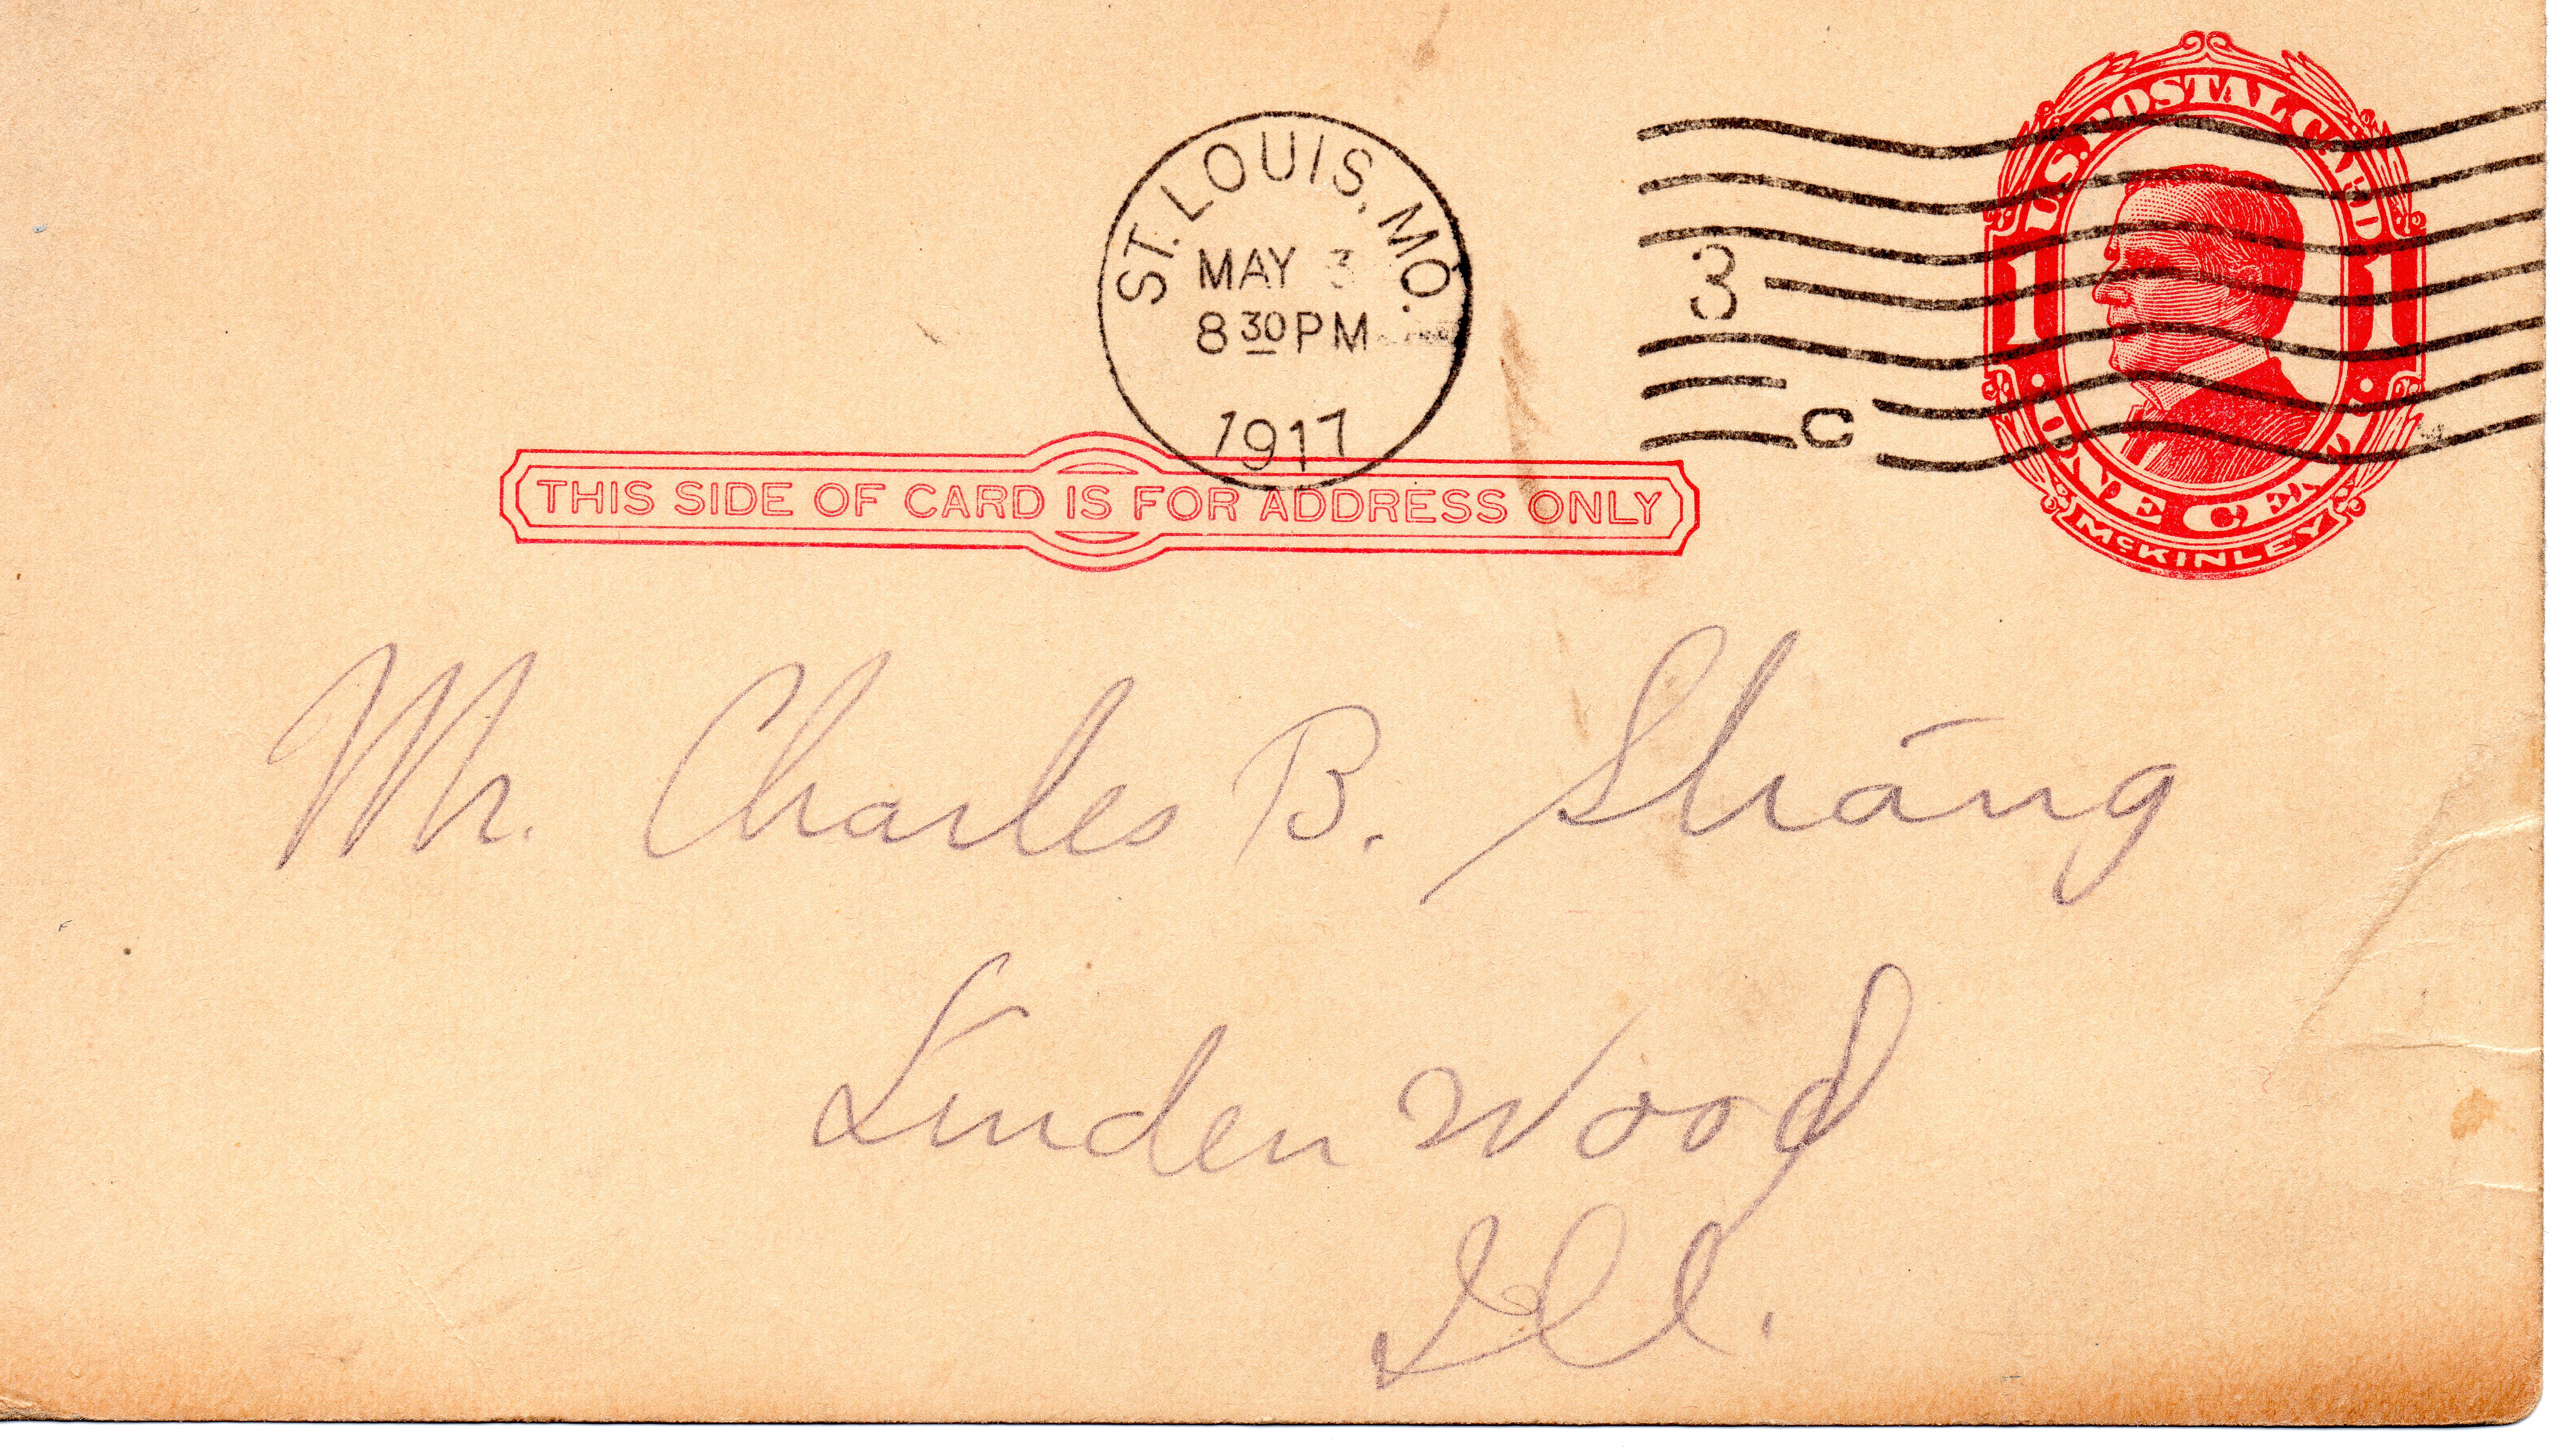 ST. LOUIS, MO.
MAY 3
8 30 PM
1917
3
C
U.S. POSTAL CARD
1 1
ONE CENT
McKINLEY
THIS SIDE OF CARD IS FOR ADDRESS ONLY
Mr. Charles B. Strang
Linden Wood
Ill.